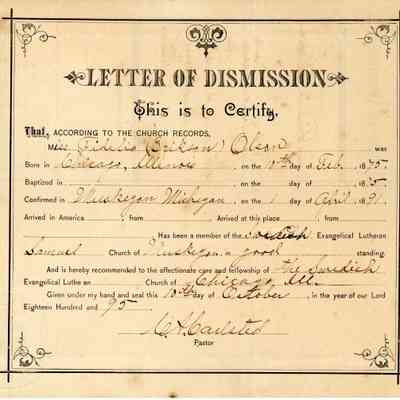 LETTER OF DISMISSION
This is to Certify,
That, ACCORDING TO THE CHURCH RECORDS,
Miss Fidelia (Erikson) Olson was
Born in Chicago, Illinois, on the 10th day of Feb. 1875
Baptized in on the day of 1875
Confirmed in Muskegon Michigan, on the 1 day of April 1891.
Arrived in America , from Arrived at this place , from
Has been a member of the Swedish Evangelical Lutheran
Samuel Church of Muskegon in good standing.
And is hereby recommended to the affectionate care and fellowship of the Swedish
Evangelical Lutheran Church of Chicago, Ill.
Given under my hand and seal this 10th day of October, in the year of our Lord
Eighteen Hundred and 95.
Pastor